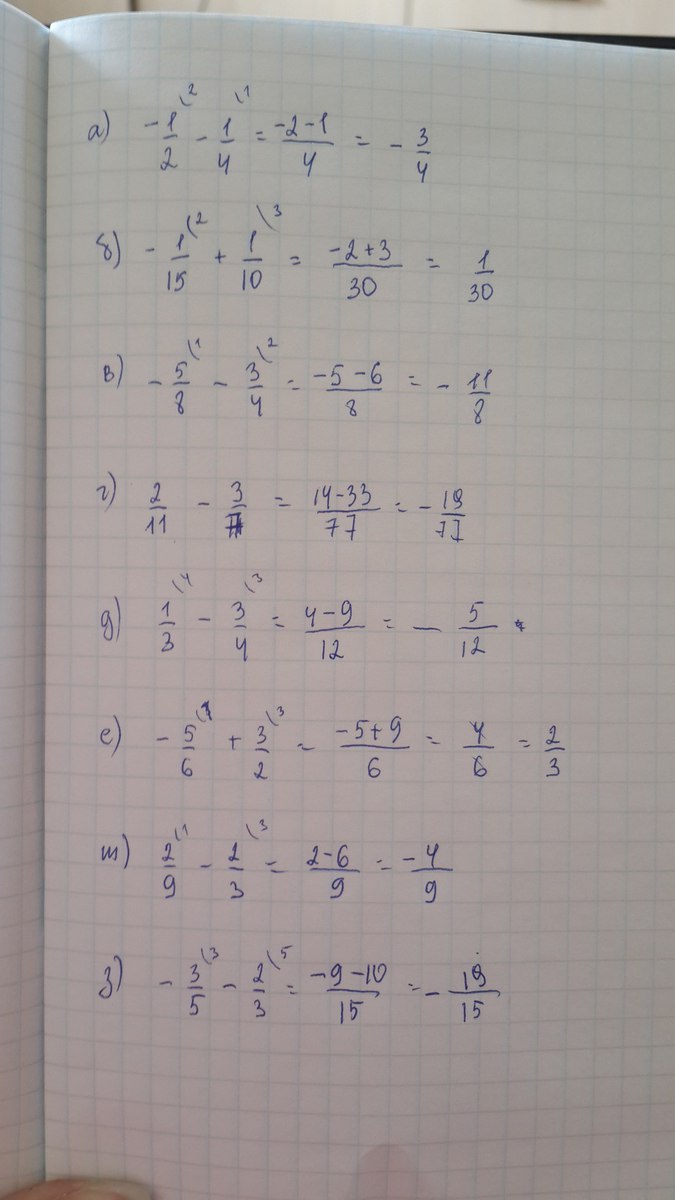 а) -1/2 ⁽² - 1/4 ⁽¹ = -2-1/4 = - 3/4
б) - 1/15 ⁽² + 1/10 ⁽³ = -2+3/30 = 1/30
в) - 5/8 ⁽¹ - 3/4 ⁽² = -5-6/8 = - 11/8
г) 2/11 - 3/7 = 14-33/77 = - 19/77
д) 1/3 ⁽⁴ - 3/4 ⁽³ = 4-9/12 = - 5/12
е) - 5/6 ⁽¹ + 3/2 ⁽³ = -5+9/6 = 4/6 = 2/3
ж) 2/9 ⁽¹ - 2/3 ⁽³ = 2-6/9 = -4/9
з) - 3/5 ⁽³ - 2/3 ⁽⁵ = -9-10/15 = - 19/15